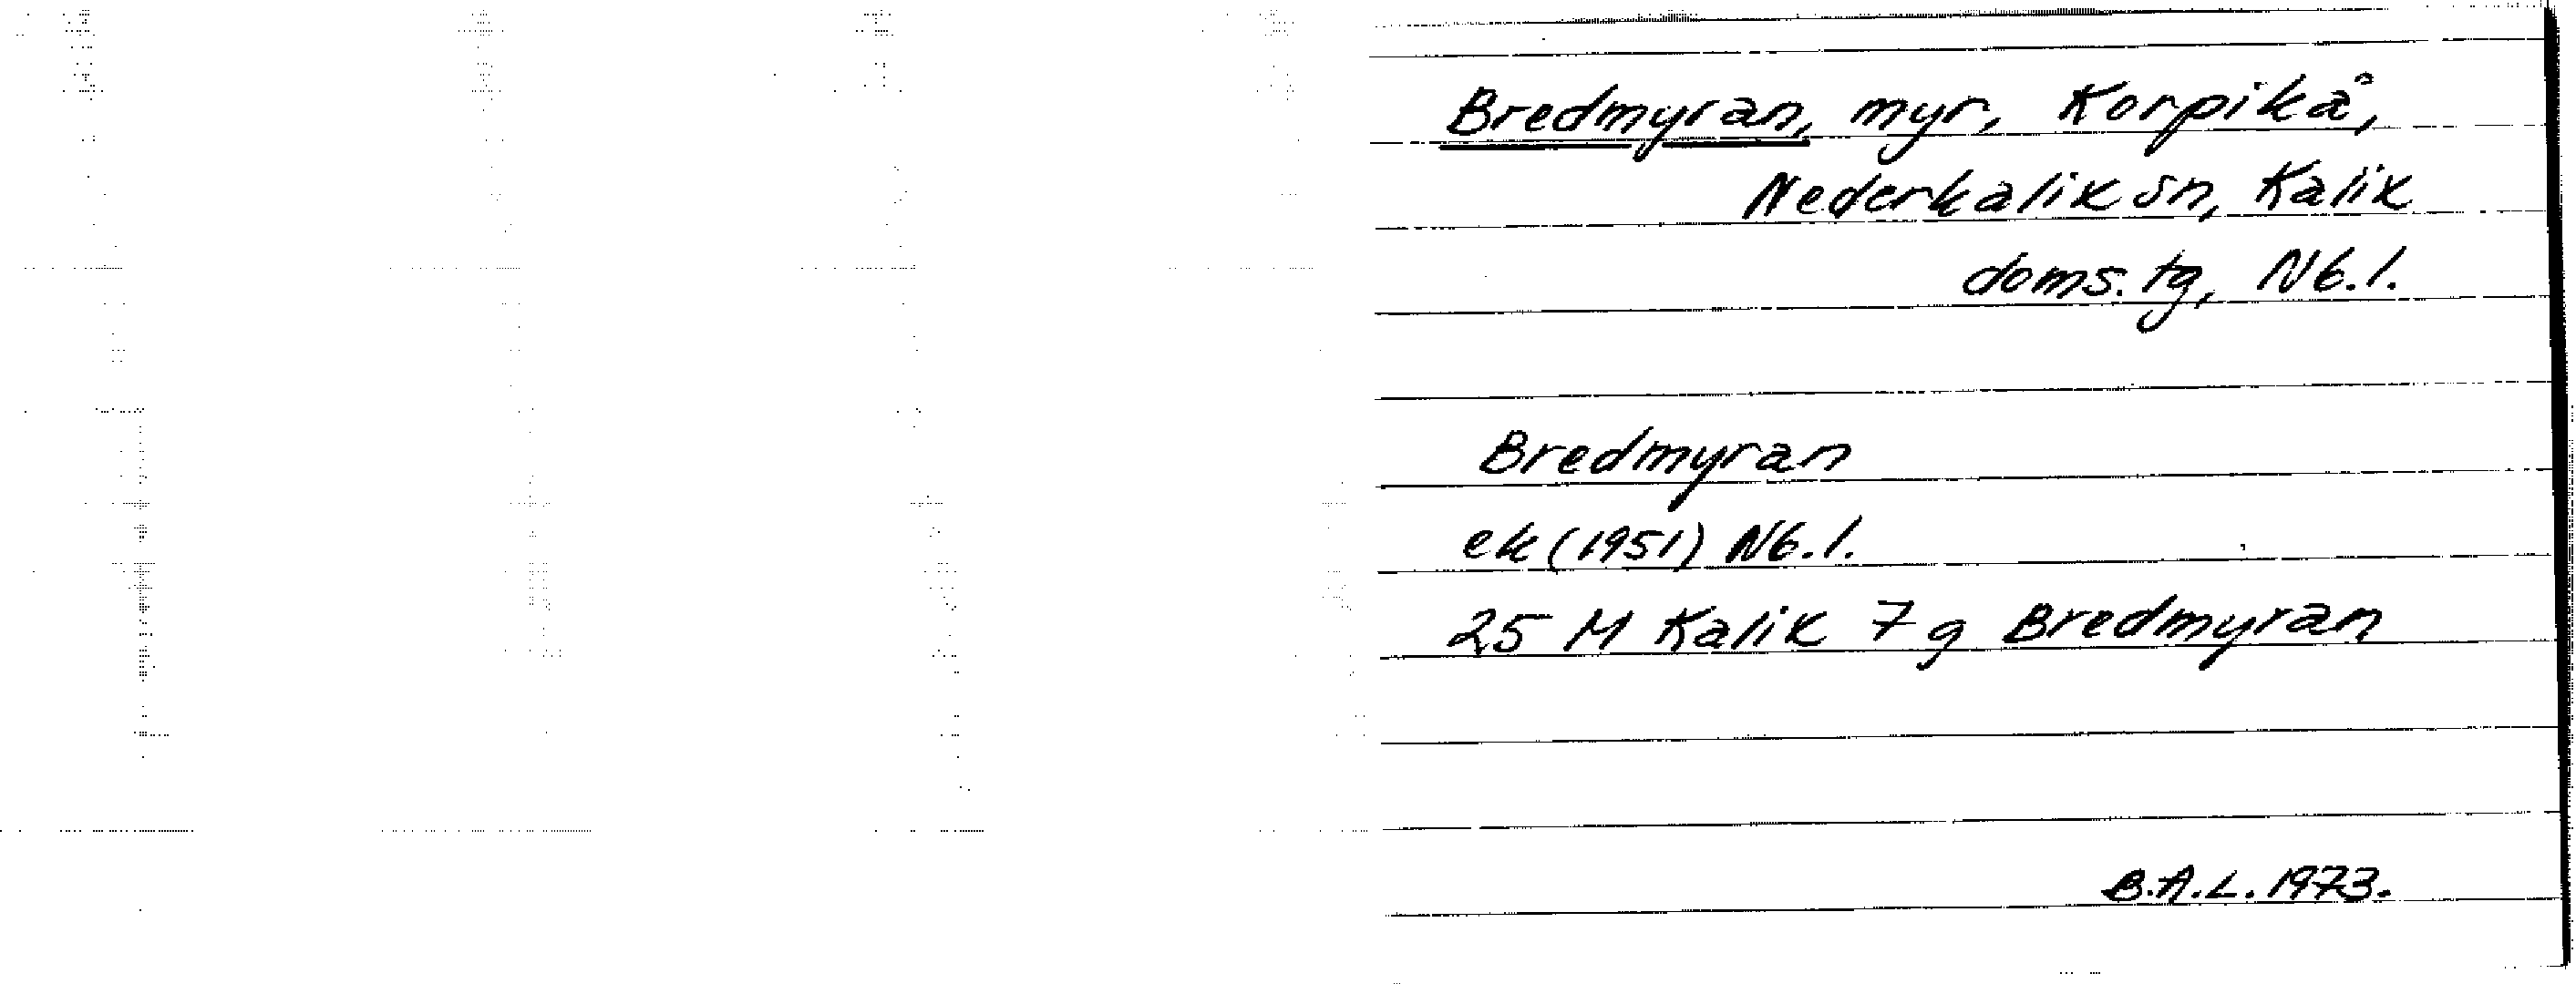 Bredmyran, myr, Korpikå,
Nederkalix sn, Kalix
doms. tg, Nb.l.
Bredmyran
ek (1951) Nb.l.
25 M Kalix 7 g Bredmyran
B.A.L. 1973.